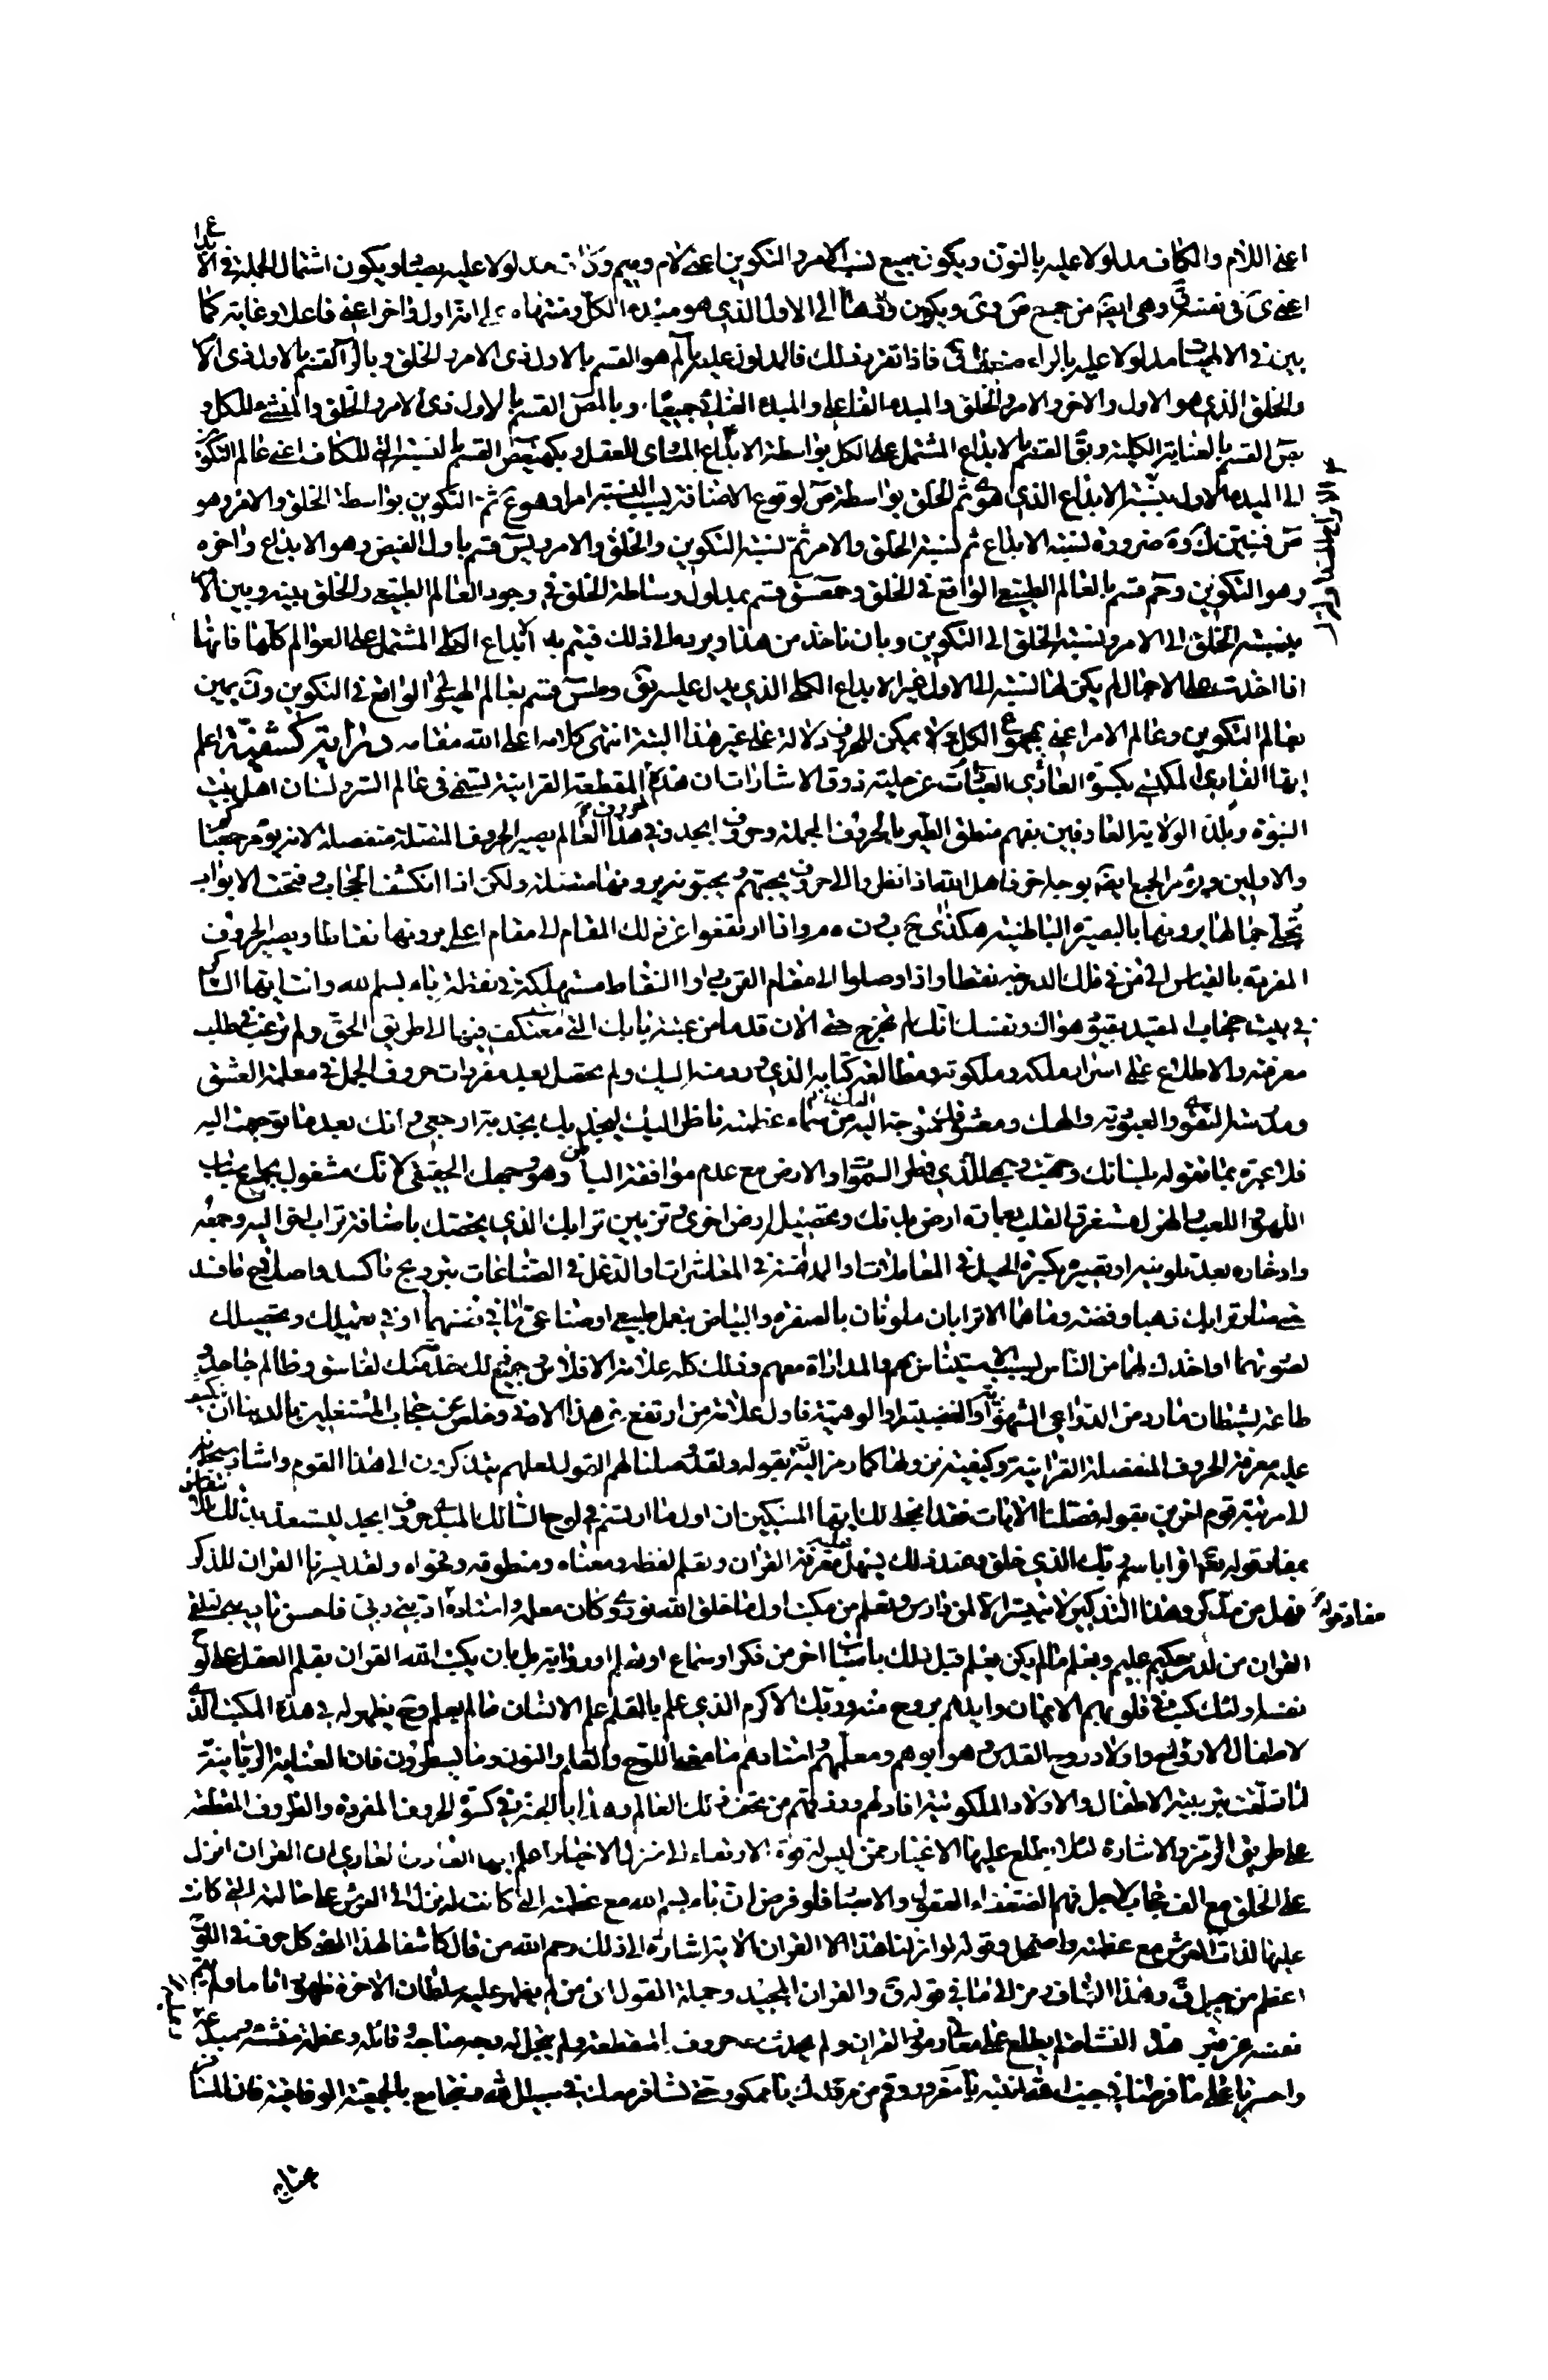 اعنى اللام والكاف مدلولا عليه بالنون ويكون جميع نسبتى الامر والتكوين اعنى لام وميم مدلولا عليه بص ويكون اشتمال الجملة فى الابداع
اعنى ى فى نفسه ق وهى ايضا من جمع ص وى ويكون ردها الى الاول الذى هو مبدء الكل ومنتهاه على انه اول واخر اعنى فاعلا وغاية كما
بين فى الالهيات مدلولا عليه بالراء ضعف ق فاذا تقرر ذلك فالمدلول عليه بالم هو القسم بالاول ذى الامر والخلق وبالر القسم بالاول ذى الامر
والخلق الذى هو الاول والاخر والامر والخلق والمبدء الفاعلى والمبدء الغائى جميعا وبالمص القسم بالاول ذى الامر والخلق والمنشئ للكل و
بص القسم بالعناية الكلية وبق القسم بالابداع المشتمل على الكل بواسطة الابداع المتساوى للعقل وبكهيعص القسم بالنسبة التى للكاف اعنى عالم التكوين
الى المبدء الاول بنسبة الابداع الذى هو ى ثم الخلق بواسطة ص لوقوع الاضافة بسبب النسبة امرا وهو ع ثم التكوين بواسطة الخلق والامر وهو
ص فبين ك و ه ضرورة نسبة الابداع ثم نسبة الخلق والامر ثم نسبة التكوين والخلق والامر ويس قسم باول الفيض وهو الابداع واخره
وهو التكوين وحم قسم بالعالم الطبيعى الواقع فى الخلق وحمعسق قسم بمدلول وساطة الخلق فى وجود العالم الطبيعى والخلق بينه وبين الامر
بنسبة الخلق الى الامر ونسبة الخلق الى التكوين وبان ناخذ من هذا ويرد الى ذلك فيتم به الابداع الكلى المشتمل على العوالم كلها فانها
اذا اخذت على الاجمال لم يكن لها نسبة الى الاول غير الابداع الكلى الذى يدل عليه بق وطس قسم بعالم الهيولى الواقع فى التكوين ون يمين
بعالم التكوين وعالم الامر اعنى مجموع الكل ولا يمكن للحروف دلالة على غير هذا البتة انتهى كلامه اعلى الله مقامه دراية كشفية اعلم
ايها القارى المكتسى بكسوة العارى العبارات عن حلية ذوق الاشارات ان هذه المقطعة القرانية تسمى فى عالم السر ولسان اهل بيت
النبوة وبلد الولاية العارفين بفهم منطق الطير بالحروف المجملة وحروف ابجد وفى هذا العالم يصير الحروف المتصلة منفصلة لانه يوم جمعنا
والاولين ورمز الجمع ايضا بوجه اخر فاهل الله اذا نظروا الى حروف يحبهم ويحبونه يرونها متصلة ولكن اذا انكشفت الحجاب وفتحت الابواب
تجلى جمالها يرونها بالبصيرة الباطنية هكذا ى ح ب ه م واذا ارتفعوا عن ذلك المقام الى مقام اعلى يرونها نقاطا ويصير الحروف
المفردة بالقياس الى من فى فلك الدورية نقطا واذا وصلوا الى مقام القرب راوا النقاط مستهلكة فى نقطة باء بسم الله وانت ايها الساكن
فى بيت حجاب المقيد بقيود هواك ونفسك تلك لم تخرج حتى الان قدما من عتبة بابك التى معتكف فيها الى طريق الحق ولم ترغب فى طلب
معرفته والاطلاع على اسرار ملكه وملكوته ومطالعة كتابه الذى ورد منه اليك ولم تحصل بعد مفردات حروف الجمل فى معلمة العشق
ومدرسة التقوى والعبودية والهك ومعشوقك من سماء عظمته ناظر اليك ليجذبك بجذبة ارجعى وانك بعد ما توجهت اليه
فلا عبرة بما تقوله بلسانك وجهت وجهى للذى فطر السموات والارض مع عدم موافقة الباطن وهو وجهك الحقيقى لانك مشغول بجامع عتاب
اللهو واللعب والهزل مستغرق القلب بعمارة ارض بدنك وتحصيل ارض اخرى وتزيين ترابك الذى يخصك باضافة تراب اخر اليه وجمعه
وادخاره بعد تلوينه او تصييره بكثرة الحيل فى المعاملات والمداهنة فى المعاشرات والتوغل فى الصناعات بترويج ما كسد واصلاح ما فسد
حتى صار ترابك ذهبا وفضة وما هما الا ترابان ملونان بالصفرة والبياض بعمل طبيعى او صناعى اما فى نفسهما او فى تعيينك وتحصيلك
لصونهما او اخذك لهما من الناس بسبب الاستيناس بهم والمداراة معهم وذلك كله علامة الافلاس وجميع لك خدمتك لفاسق وظالم جاهل و
طاعة لشيطان مارد من الدواعى الشهوية والغضبية والوهمية فاول علامة من ارتفع من هذا الارض وخلص عن حجاب المشتغلين بالدنيا ان ينكشف
عليه معرفة الحروف المفصلة القرانية وكيفية نزولها كما رمز اليه بقوله ولقد وصلنا لهم القول لعلهم يتذكرون الى هذا القوم واشار سبحانه
للمرتبة قوم اخرين بقوله فصلنا الايات فقد انجلى لك ايها المسكين ان اول ما ارتسم فى لوح السالك المبتدى حروف ابجد ليستعد بذلك
بمفاد قوله تعالى اقرا باسم ربك الذى خلق وعند ذلك يسهل عليه معرفة القران وتعلم لفظه ومعناه ومنطوقه وفحواه ولقد يسرنا القران للذكر
مفاد قوله فهل من مدكر وهذا التذكير لا يتيسر الا لمن دارس وتعلم من مكتب اول ما خلق الله نورى وكان معلمه واستاده ادبنى ربى فاحسن تاديبى تلقى
القران من لدن حكيم عليم وتعلم ما لم يكن يعلم قبل ذلك باسباب اخر من فكر او سماع او تعلم او رواية بل بان يكتب الله القران بقلم العقل على لوح
نفسه اولئك كتب فى قلوبهم الايمان وايدهم بروح منه وربك الاكرم الذى علم بالقلم علم الانسان ما لم يعلم وح يظهر له فى هذه المكتب الذى
لاطفال الارواح واولاد روح القدس هو ابوهم ومعلمهم واستادهم ما معنى اللوح والقلم والنون وما يسطرون فان العناية الربانية
لما تعلقت بتربية الاطفال والاولاد الملكوتية افادهم ورزقهم من تحف ذلك العالم وهدايا الجنة فى كسوة الحروف المفردة والظروف المقطعة
على طريق الرمز والاشارة لئلا يطلع عليها الاغيار ممن ليس له قوة الارتقاء الى منزل الاخيار اعلم ايها القارى ان القران انزل
على الخلق مع الف حجاب لاجل فهم الضعفاء العقول والابصار فلو فرض ان باء بسم الله مع عظمته التى كانت له نزل الى العرش على حالته التى كانت
عليها لذاب العرش مع عظمته واضمحل وقوله لو انزلنا هذا القران الاية اشارة الى ذلك رحم الله من قال كاشفا لهذا المعنى كل حرف فى اللوح
اعظم من جبل ق وهذا القاف رمز الى ما فى قوله ق والقران المجيد وجملة القول ان من لم يظهر عليه سلطان الاخرة فلهو اذا ما وملهم
نفسه عن قبر هذا النشاة لم يطلع على معانى رموز القران ولم يحدث معه حروف المقطعة ولم يتجل له وجه مناجه وقائله وعظمة منشئه ومبدعه
واحسرتا على ما فرطنا فى جنب الله انتبه يا مغرور وقم من مرقدك يا ممكور حتى نسافر معك فى سبيل الله متجامع بالجمعية الوفاقية فان المسافر